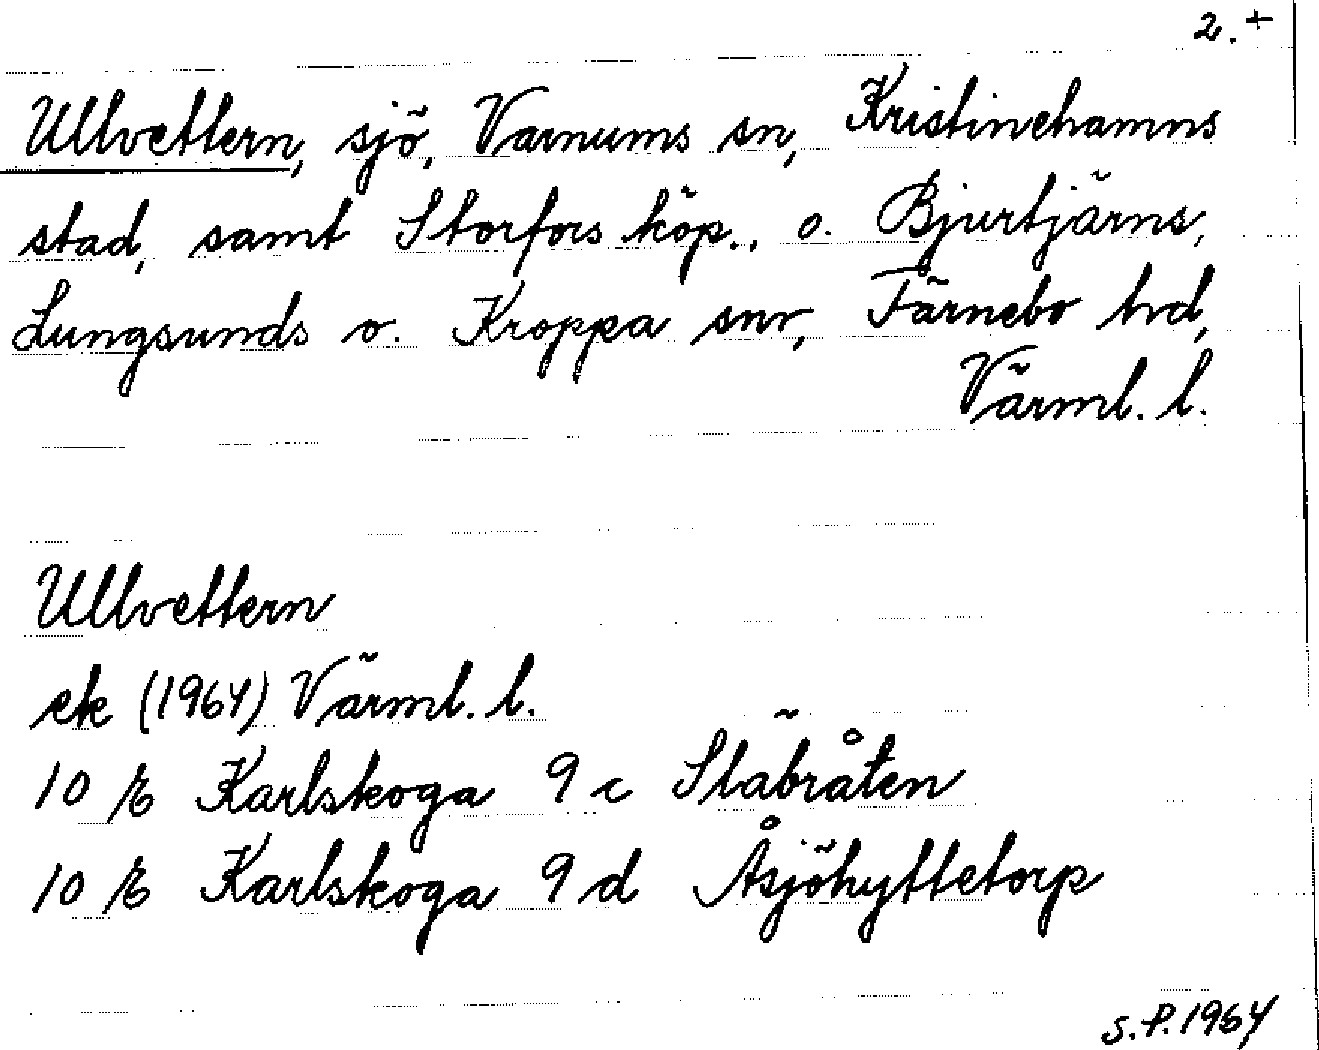 2.+
Ullvettern, sjö, Varnums sn, Kristinehamns
stad, samt Storfors köp., o. Bjurtjärns,
Lungsunds o. Kroppa snr, Färnebo hd,
Värml. l.
Ullvettern
ek (1964) Värml. l.
10 E Karlskoga 9 c Stäbråten
10 E Karlskoga 9 d Åsjöhyttetorp
S.P. 1964